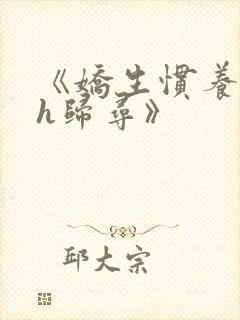 《嬌生慣養
h歸尋》
邱大宗